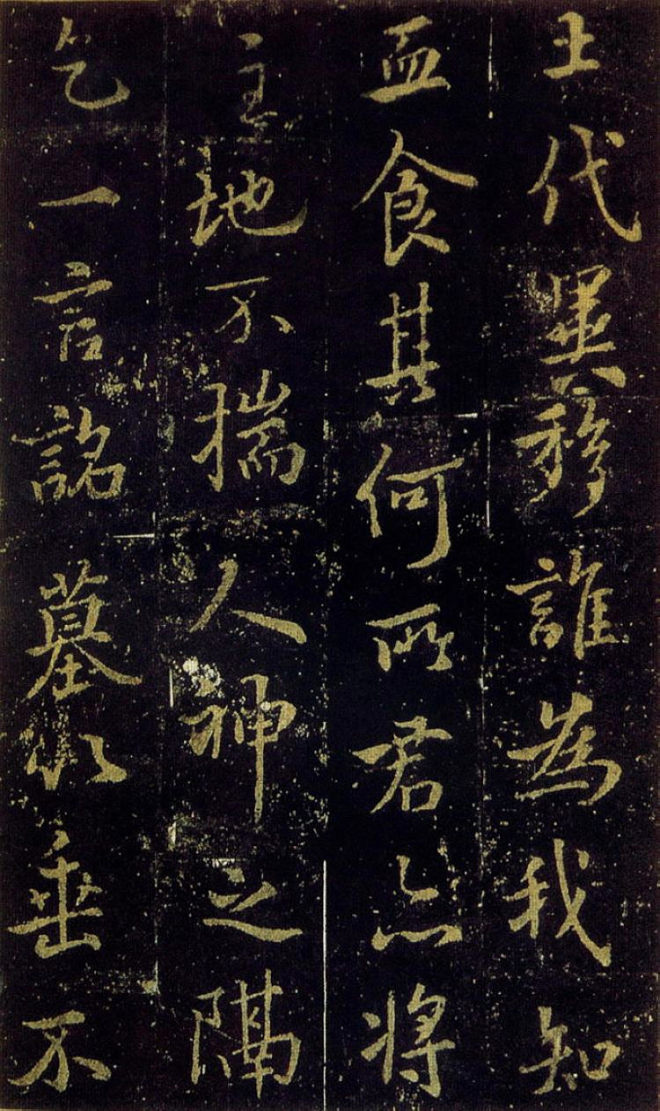 土代異移誰為我知
血食其何所君亦將
主地不揣人神之隔
乞一言詺墓以垂不